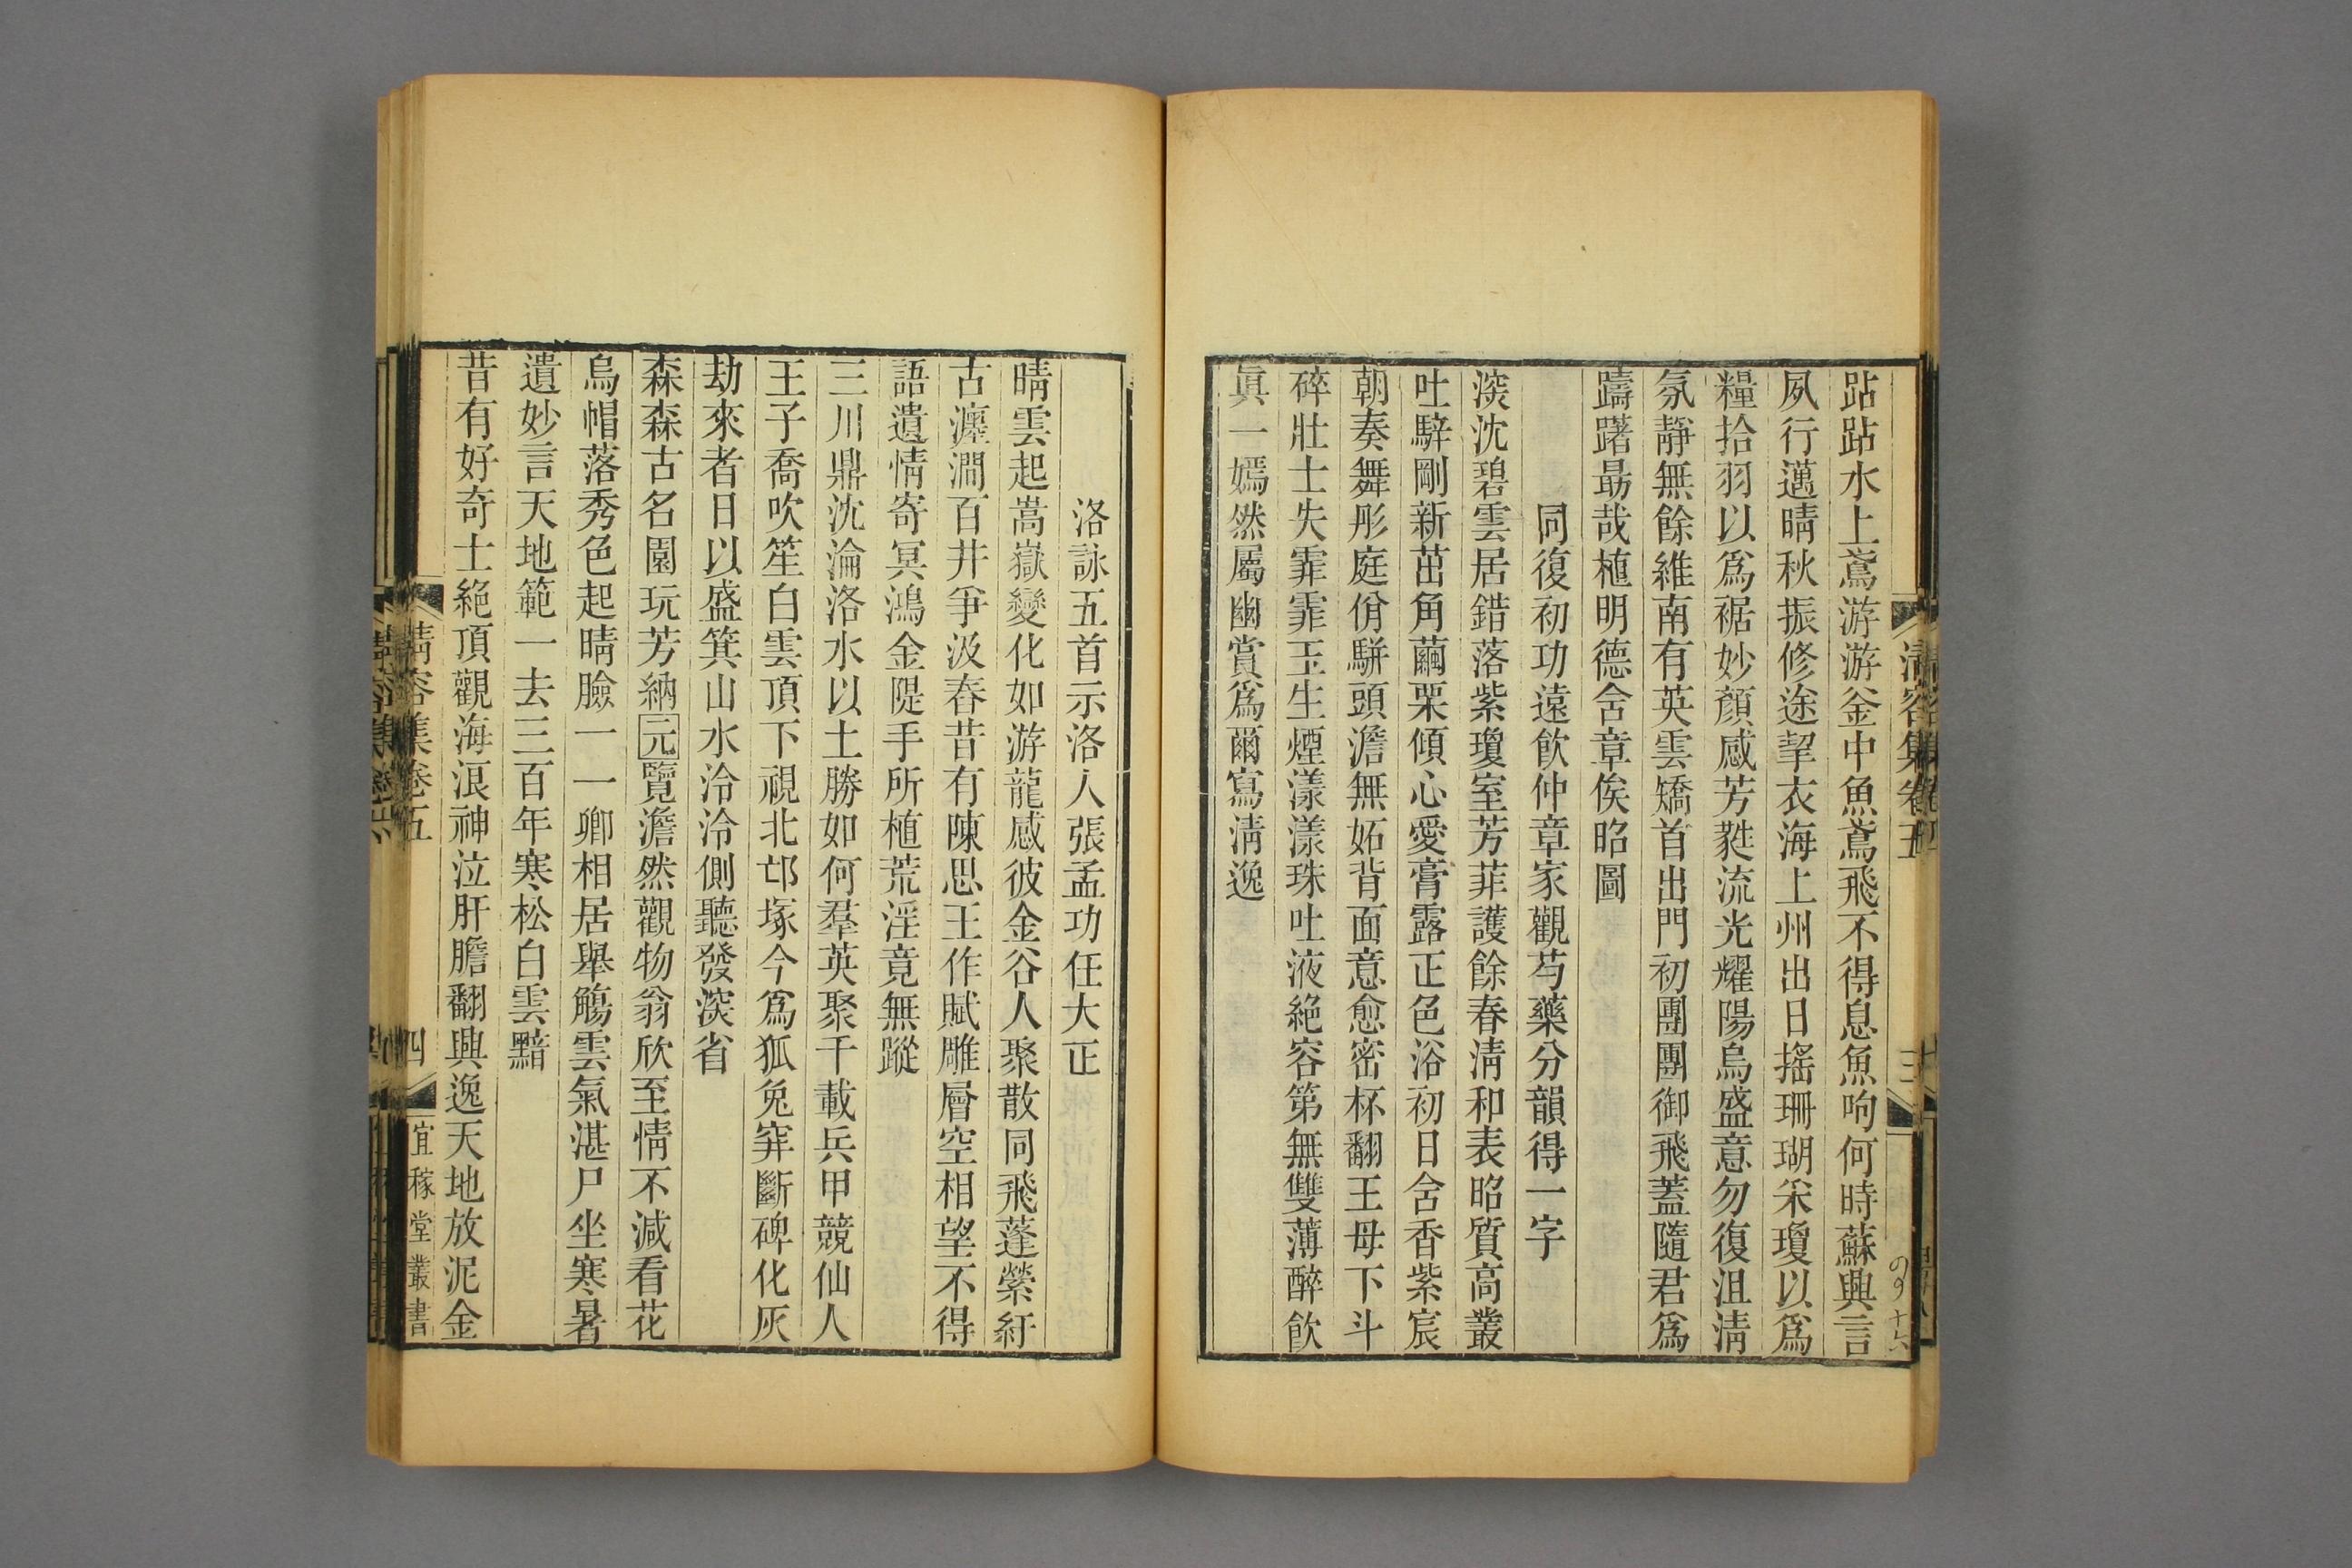 跕跕水上鳶游游釜中魚鳶飛不得息魚呴何時蘇興言
夙行邁晴秋振修途挈衣海上州出日搖珊瑚采瓊以爲
糧拾羽以爲裾妙顏感芳蕤流光耀陽烏盛意勿復沮淸
氛靜無餘維南有英雲矯首出門初團團御飛蓋隨君爲
躊躇勗哉植明德含章俟昭圖
同復初功遠飮仲章家觀芍藥分韻得一字
湥沈碧雲居錯落紫瓊室芳菲護餘春淸和表昭質高叢
吐騂剛新茁角繭栗傾心愛膏露正色浴初日含香紫宸
朝奏舞彤庭佾駢頭澹無妬背面意愈密杯翻王母下斗
碎壯士失霏霏玉生煙漾漾珠吐液絶容第無雙薄醉飮
眞一嫣然屬幽賞爲爾寫淸逸
淸容集卷五
三
洛詠五首示洛人張孟功任大正
晴雲起嵩嶽變化如游龍感彼金谷人聚散同飛蓬縈紆
古瀍澗百井爭汲舂昔有陳思王作賦雕層空相望不得
語遺情寄冥鴻金隄手所植荒淫竟無蹤
三川鼎沈淪洛水以土勝如何羣英聚千載兵甲競仙人
王子喬吹笙白雲頂下視北邙塚今爲狐兔穽斷碑化灰
劫來者日以盛箕山水泠泠側聽發湥省
森森古名園玩芳納元覽澹然觀物翁欣至情不減看花
烏帽落秀色起晴臉一一卿相居舉觴雲氣湛尸坐寒暑
遺妙言天地範一去三百年寒松白雲黯
昔有好奇士絶頂觀海浪神泣肝膽翻興逸天地放泥金
淸容集卷五
四
宜稼堂叢書